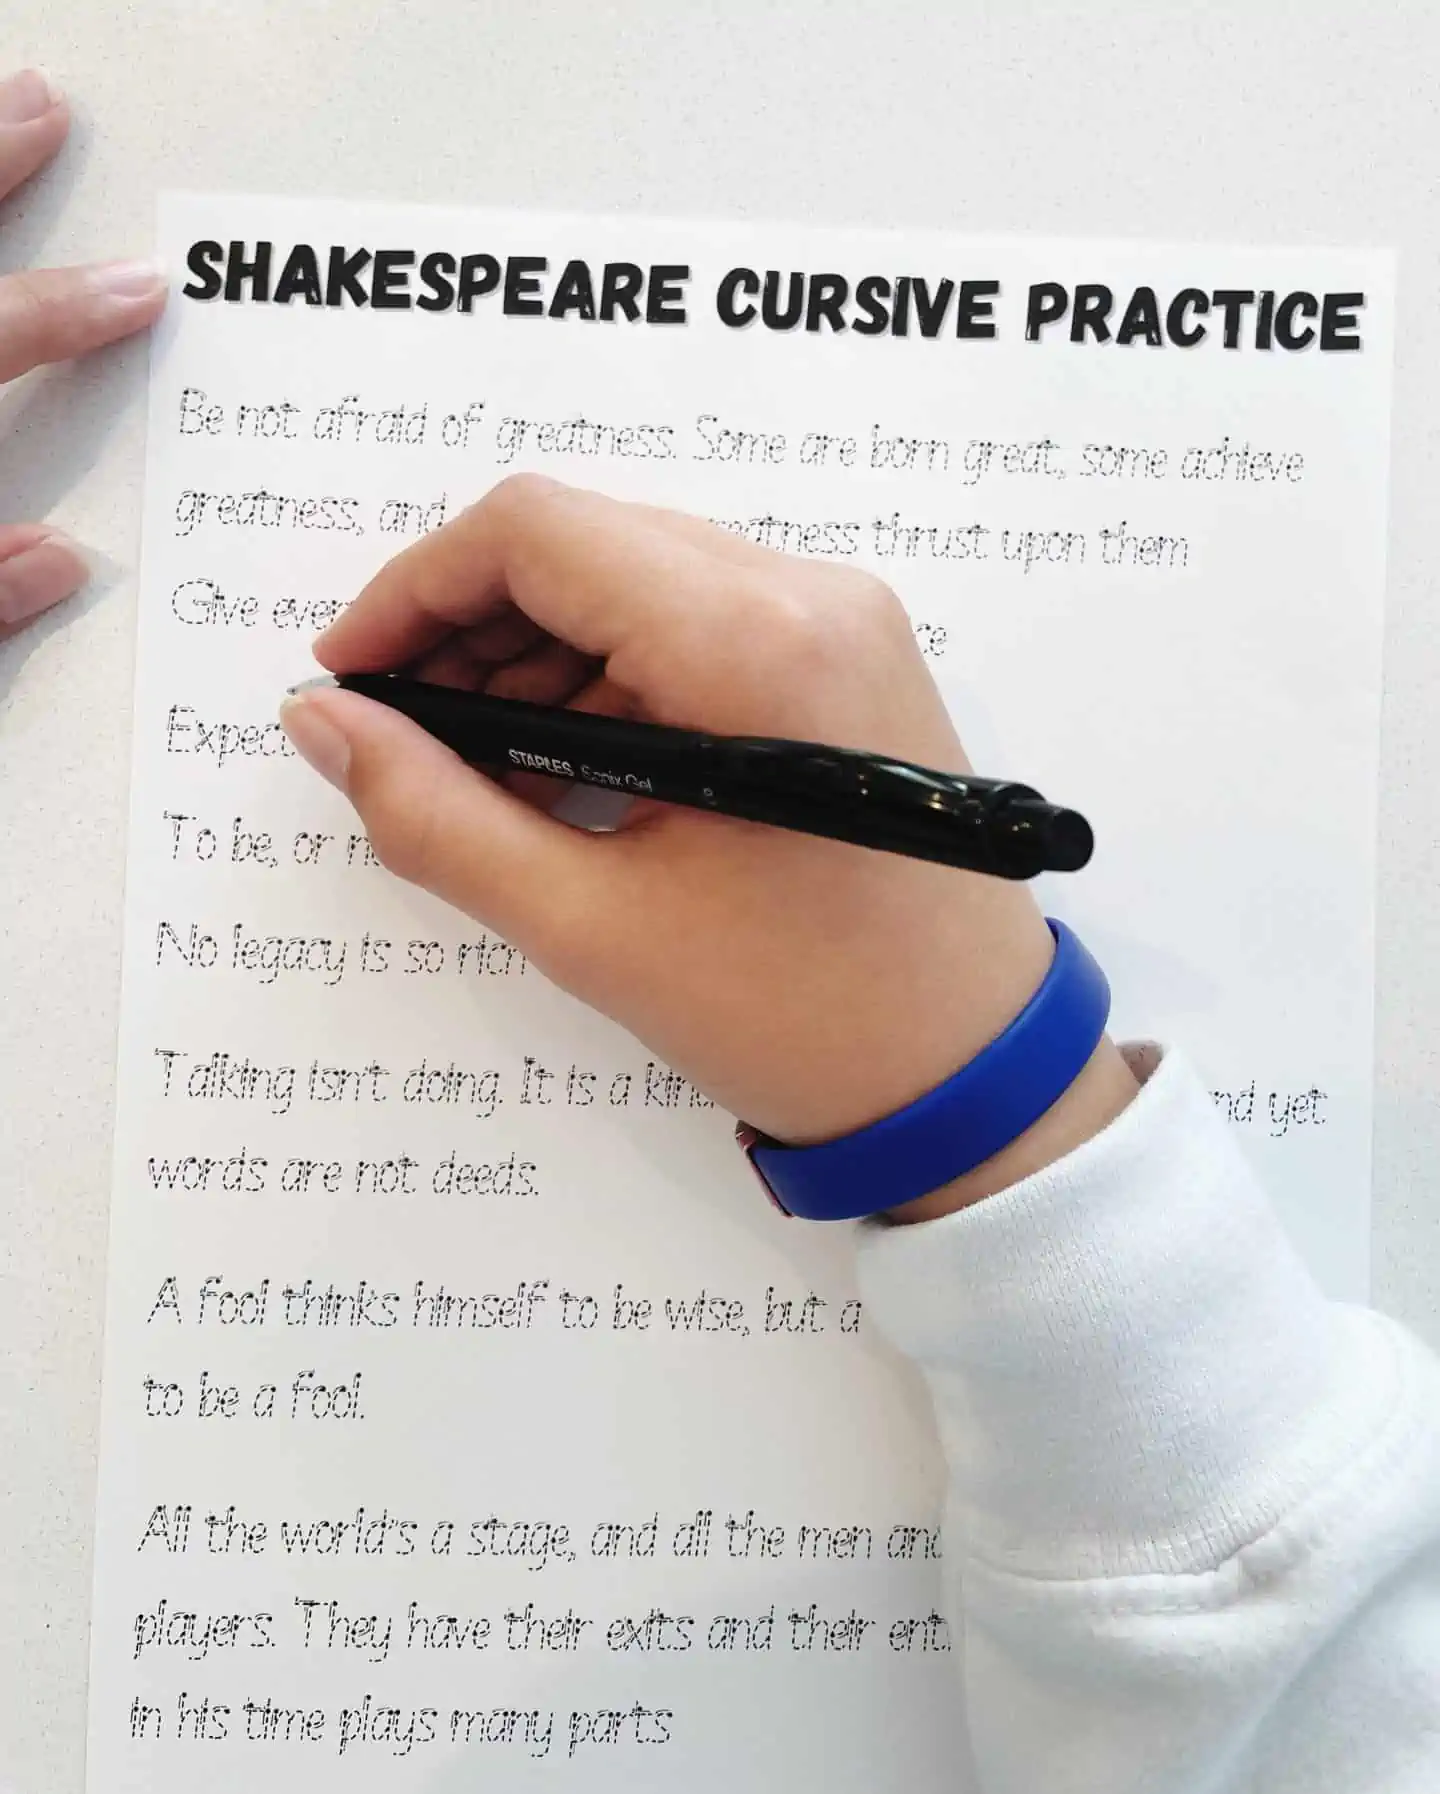 SHAKESPEARE CURSIVE PRACTICE
Be not afraid of greatness. Some are born great, some achieve
greatness, and greatness thrust upon them
Give
To be, or
No legacy is so rich
Talking isn't doing. It is a kind and yet
words are not deeds.
A fool thinks himself to be wise, but a
to be a fool.
All the world's a stage, and all the men and
players. They have their exits and their
in his time plays many parts
STAPLES Sonix Gel